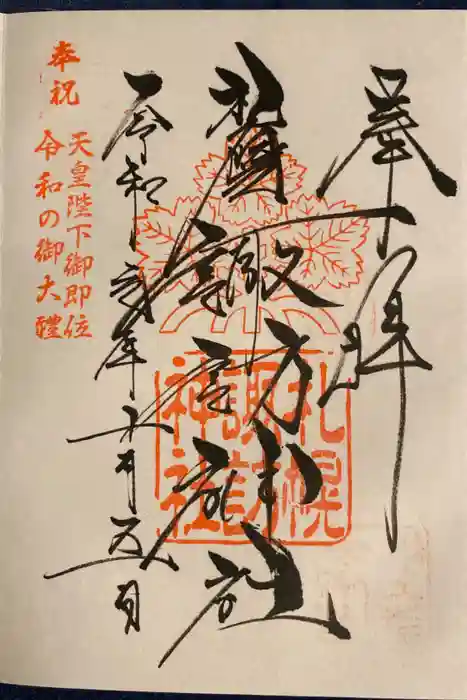 奉拝
札幌諏訪神社
令和弐年六月五日
奉祝
天皇陛下御即位
令和の御大禮
札幌
諏訪
神社